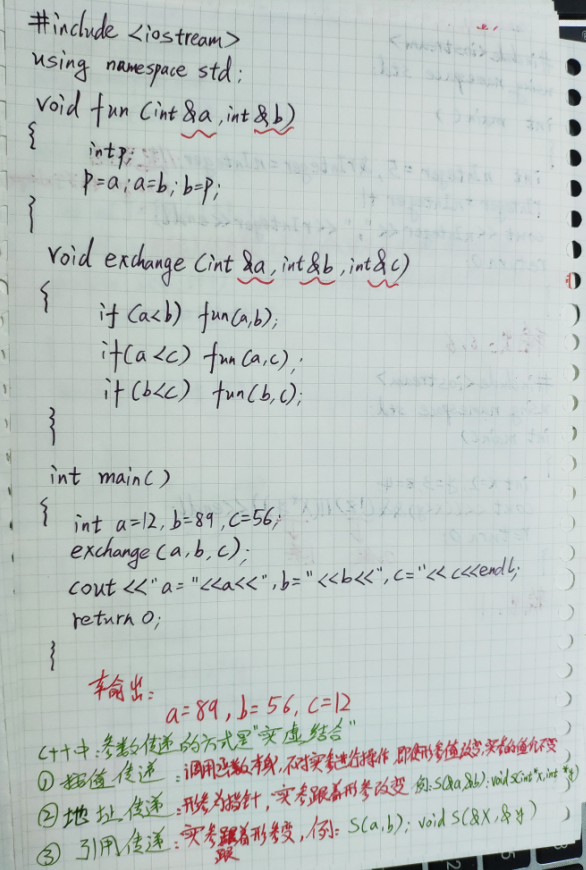 #include <iostream>
using namespace std;
void fun (int &a, int &b)
{
int p;
p=a; a=b; b=p;
}
void exchange (int &a, int &b, int &c)
{
if (a<b) fun(a,b);
if(a<c) fun(a,c);
if(b<c) fun(b,c);
}
int main()
{
int a=12, b=89, c=56;
exchange(a,b,c);
cout <<"a="<<a<<",b="<<b<<",c="<<c<<endl;
return 0;
}
输出:
a=89, b=56, c=12
C++中:参数传递的方式是"实虚结合"
① 值传递:调用函数本身,不对实参进行操作,即使形参值改变,实参的值也不变
② 地址传递:形参为指针,实参跟着形参改变 例:S(&a,&b); void S(int *x, int *y)
③ 引用传递:实参跟着形参变,例:S(a,b); void S(&x,&y)
跟